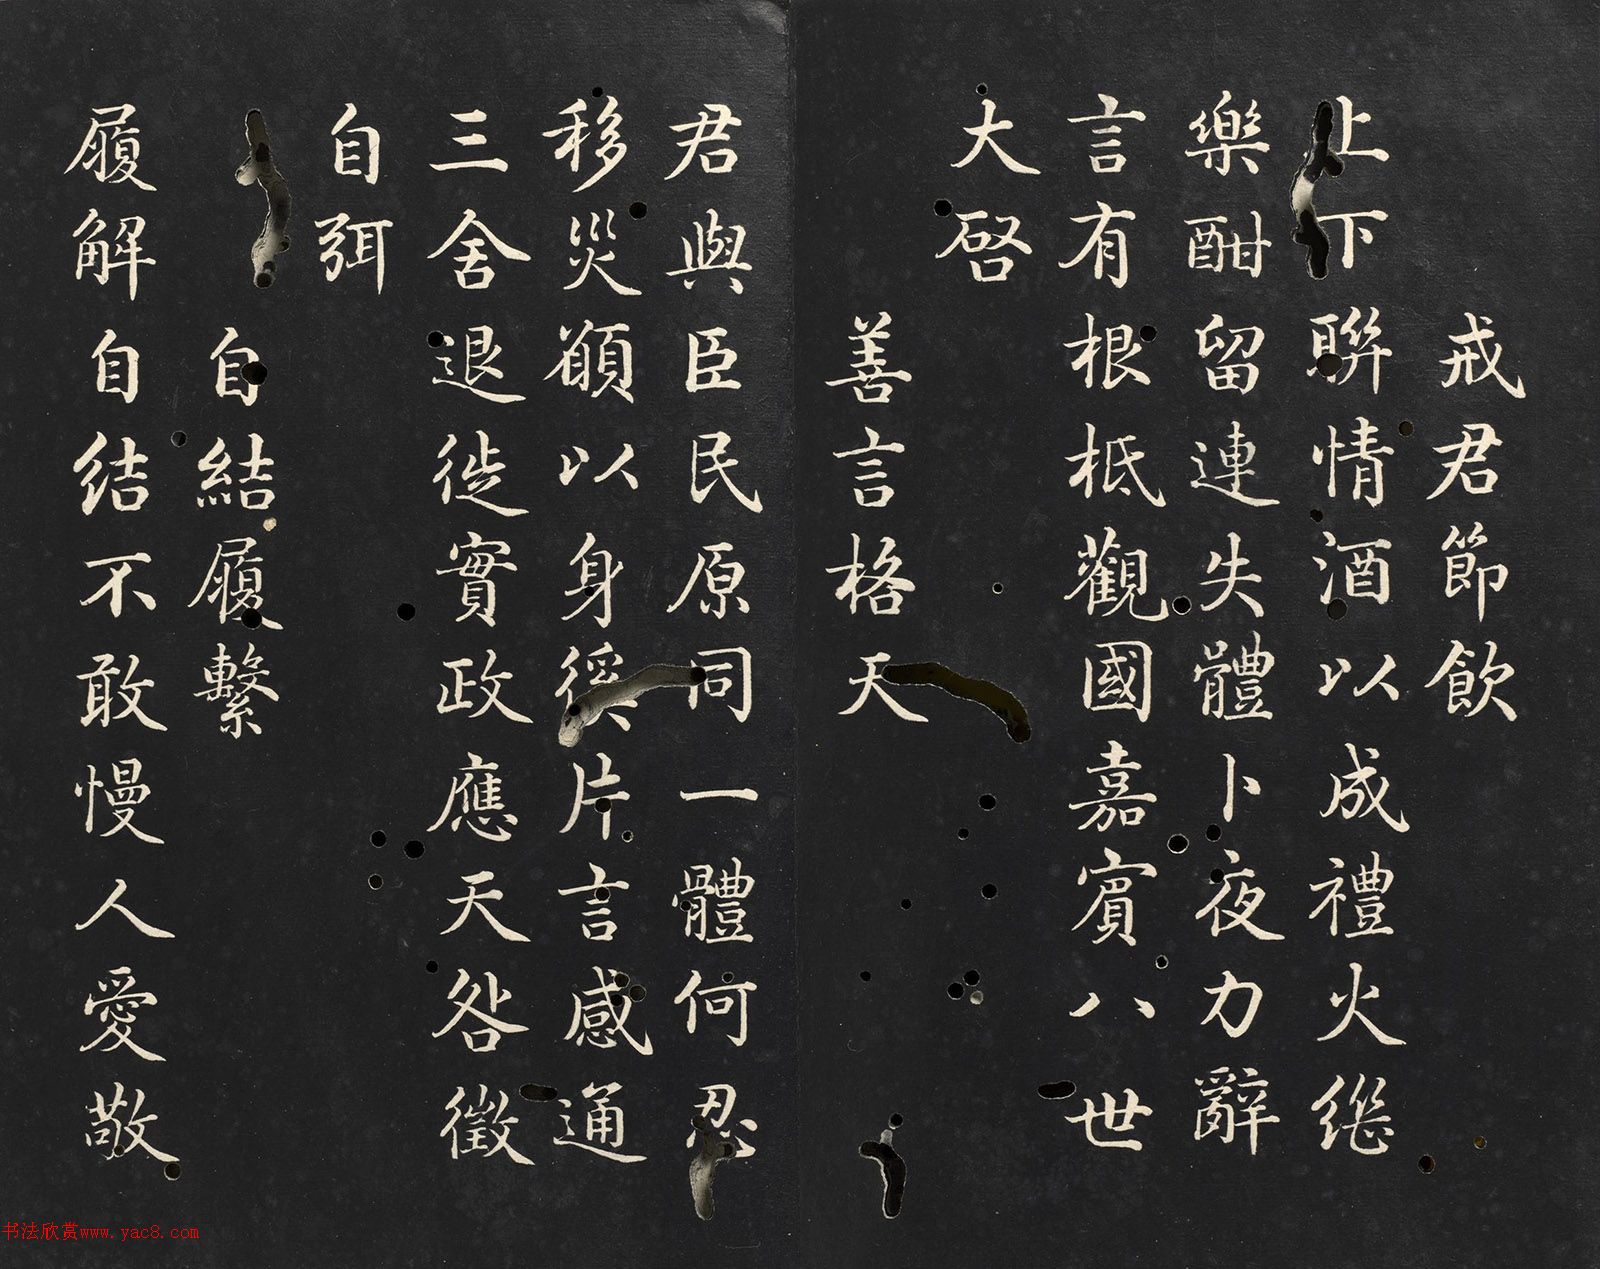 戒君節飲
上下聯情酒以成禮火继
樂酣留連失體卜夜力辭
言有根柢觀國嘉賓八世
大啓
善言格天
君與臣民原同一體何忍
移災願以身徯片言感通
三舍退徙實政應天咎徵
自弭
自結履繫
履解自结不敢慢人愛敬
书法欣赏www.yac8.com